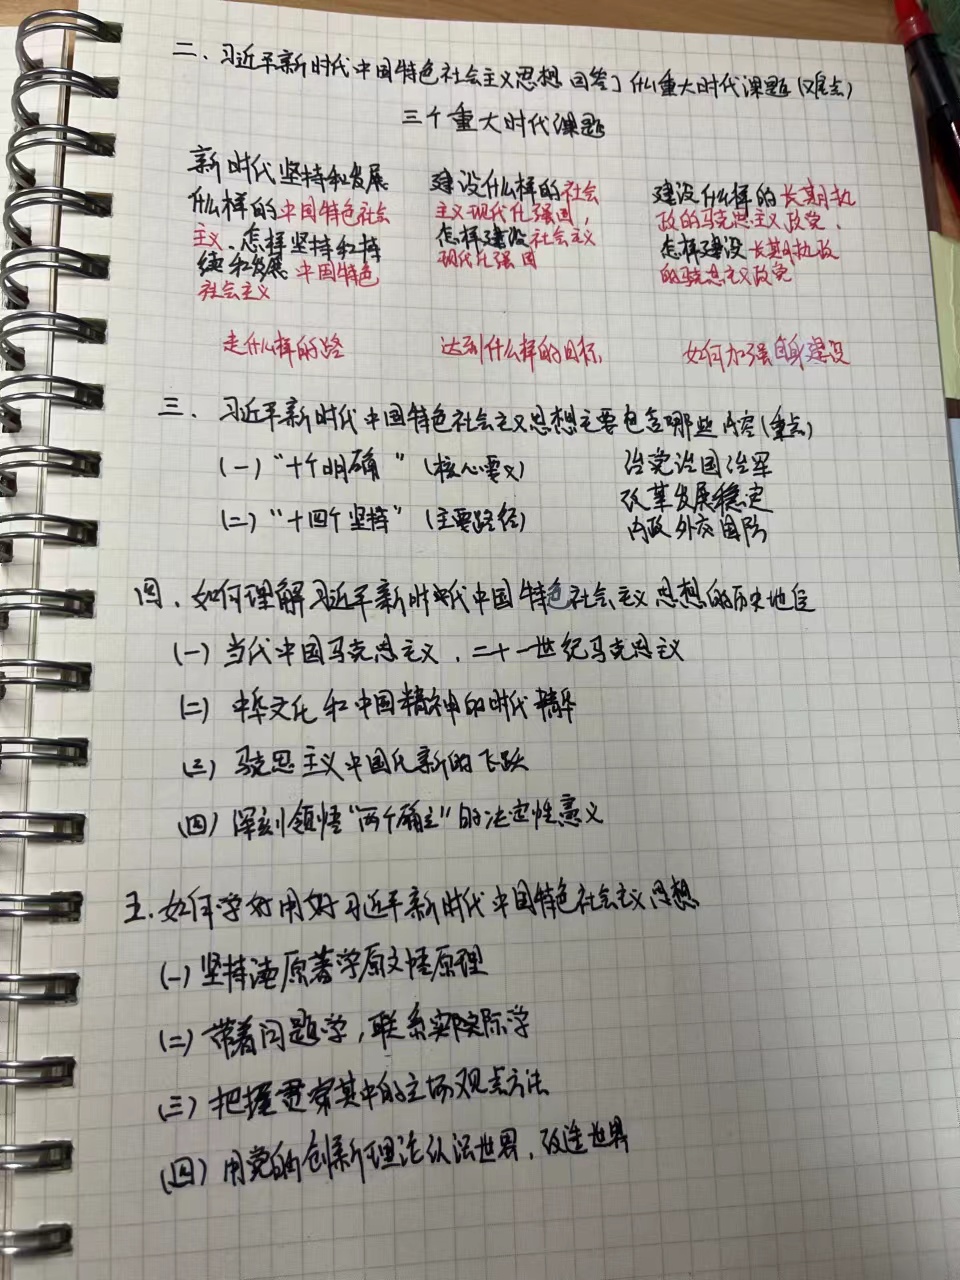 二、习近平新时代中国特色社会主义思想回答了什么重大时代课题(难点)
三个重大时代课题
新时代坚持和发展
什么样的中国特色社会
主义、怎样坚持和持
续和发展中国特色
社会主义
走什么样的路
建设什么样的社会
主义现代化强国,
怎样建设社会主义
现代化强国
达到什么样的目标,
建设什么样的长期执
政的马克思主义政党、
怎样建设长期执政
的马克思主义政党
如何加强自身建设
三、习近平新时代中国特色社会主义思想主要包含哪些内容(重点)
(一)“十个明确”(核心要义)
(二)“十四个坚持”(主要路径)
治党治国治军
改革发展稳定
内政外交国防
四、如何理解习近平新时代中国特色社会主义思想的历史地位
(一)当代中国马克思主义、二十一世纪马克思主义
(二)中华文化和中国精神的时代精华
(三)马克思主义中国化新的飞跃
(四)深刻领悟“两个确立”的决定性意义
五、如何学好用好习近平新时代中国特色社会主义思想
(一)坚持读原著学原文悟原理
(二)带着问题学,联系实际学
(三)把握贯穿其中的立场观点方法
(四)用党的创新理论认识世界、改造世界